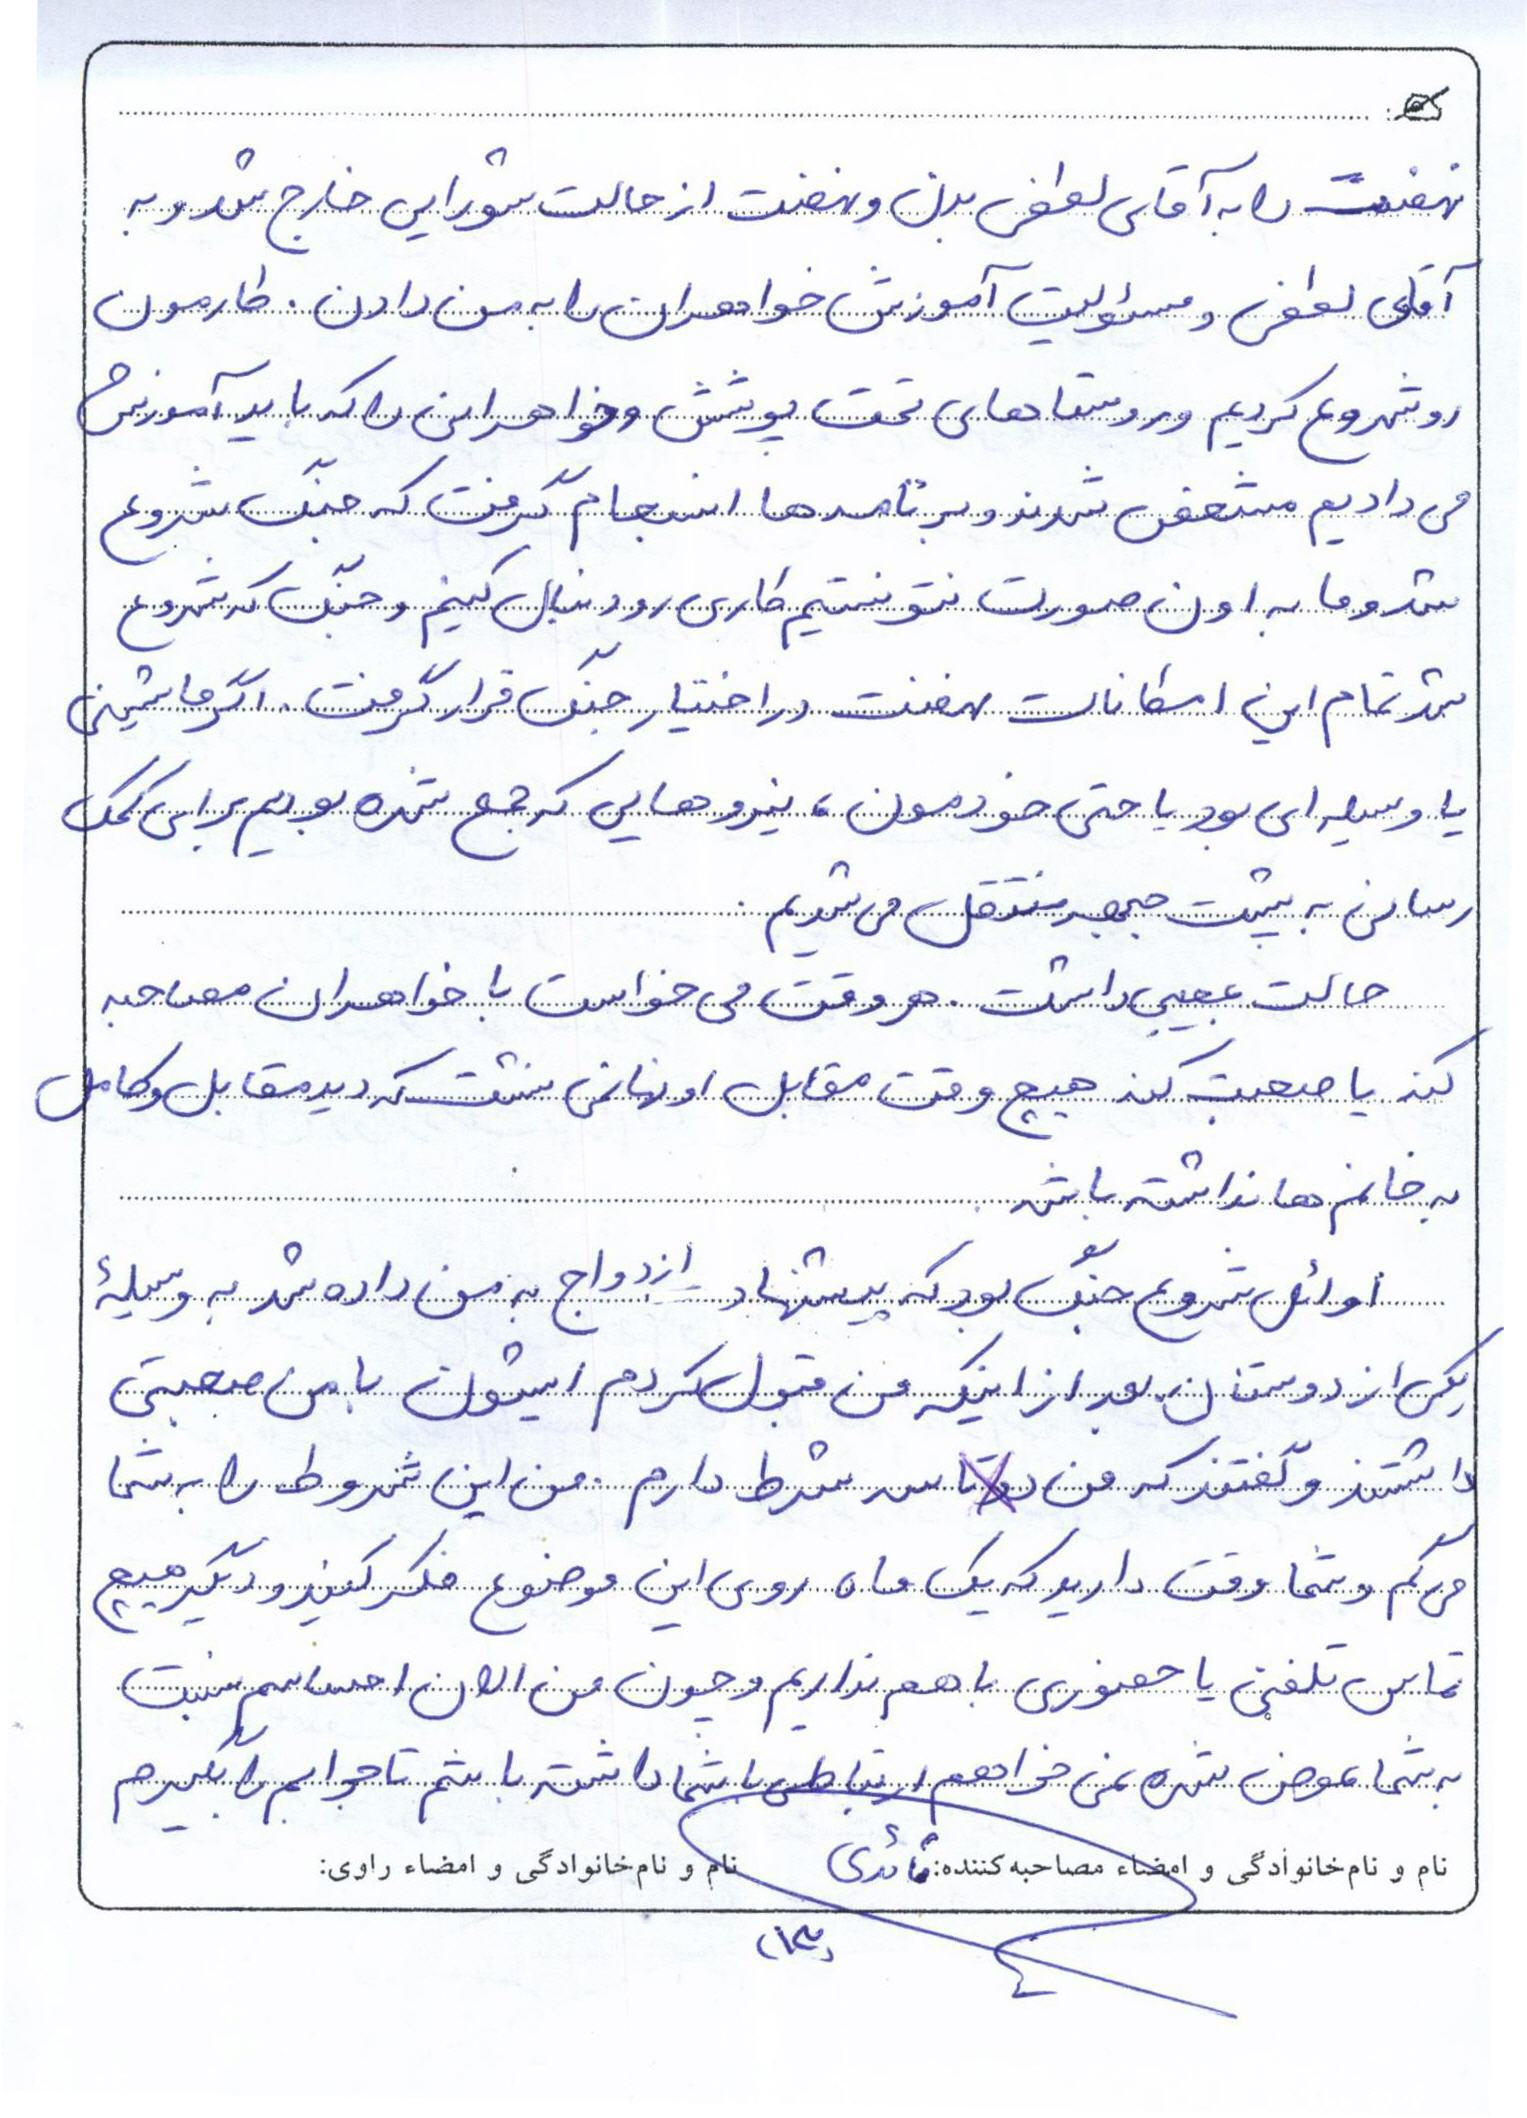 نهضت را به آقای لطفی بدن و نهضت از حالت شورایی خارج شد و به
آقای لطفی و مسئولیت آموزش خواهران را به من دادن. کارمون
رو شروع کردیم و روستاهای تحت پوشش و خواهرانی را که باید آموزش
می دادیم مشخص شدند و برنامه ها انجام گرفت که جنگ شروع
شد و ما به اون صورت نتونستیم کاری رو دنبال کنیم و جنگ که شروع
شد تمام این امکانات نهضت در اختیار جنگ قرار گرفت. اگر ماشینی
یا وسیله ای بود یا حتی خودمون، نیروهایی که جمع شده بودیم برای کمک
رسانی به پشت جبهه منتقل می شدیم.
حالت عجیبی داشت. هر وقت می خواست با خواهران مصاحبه
کند یا صحبت کند هیچ وقت مقابل اونها نمی نشست که دید مقابل و کامل
به خانم ها نداشته باشد
اوائل شروع جنگ بود که پیشنهاد ازدواج به من داده شد به وسیلهٔ
یکی از دوستان. بعد از اینکه من قبول کردم ایشون با من صحبتی
داشتند و گفتند که من دو تا سه شرط دارم. من این شروط را به شما
می گم و شما وقت دارید که یک ماه روی این موضوع فکر کنید و دیگر هیچ
تماس تلفنی یا حضوری با هم نداریم و چون من الان احساسم نسبت
به شما عوض شده نمی خواهم ارتباطی با شما داشته باشم تا جوابم را بگیرم
نام و نام‌خانوادگی و امضاء مصاحبه‌کننده: قائدی نام و نام‌خانوادگی و امضاء راوی:
(۱۳)